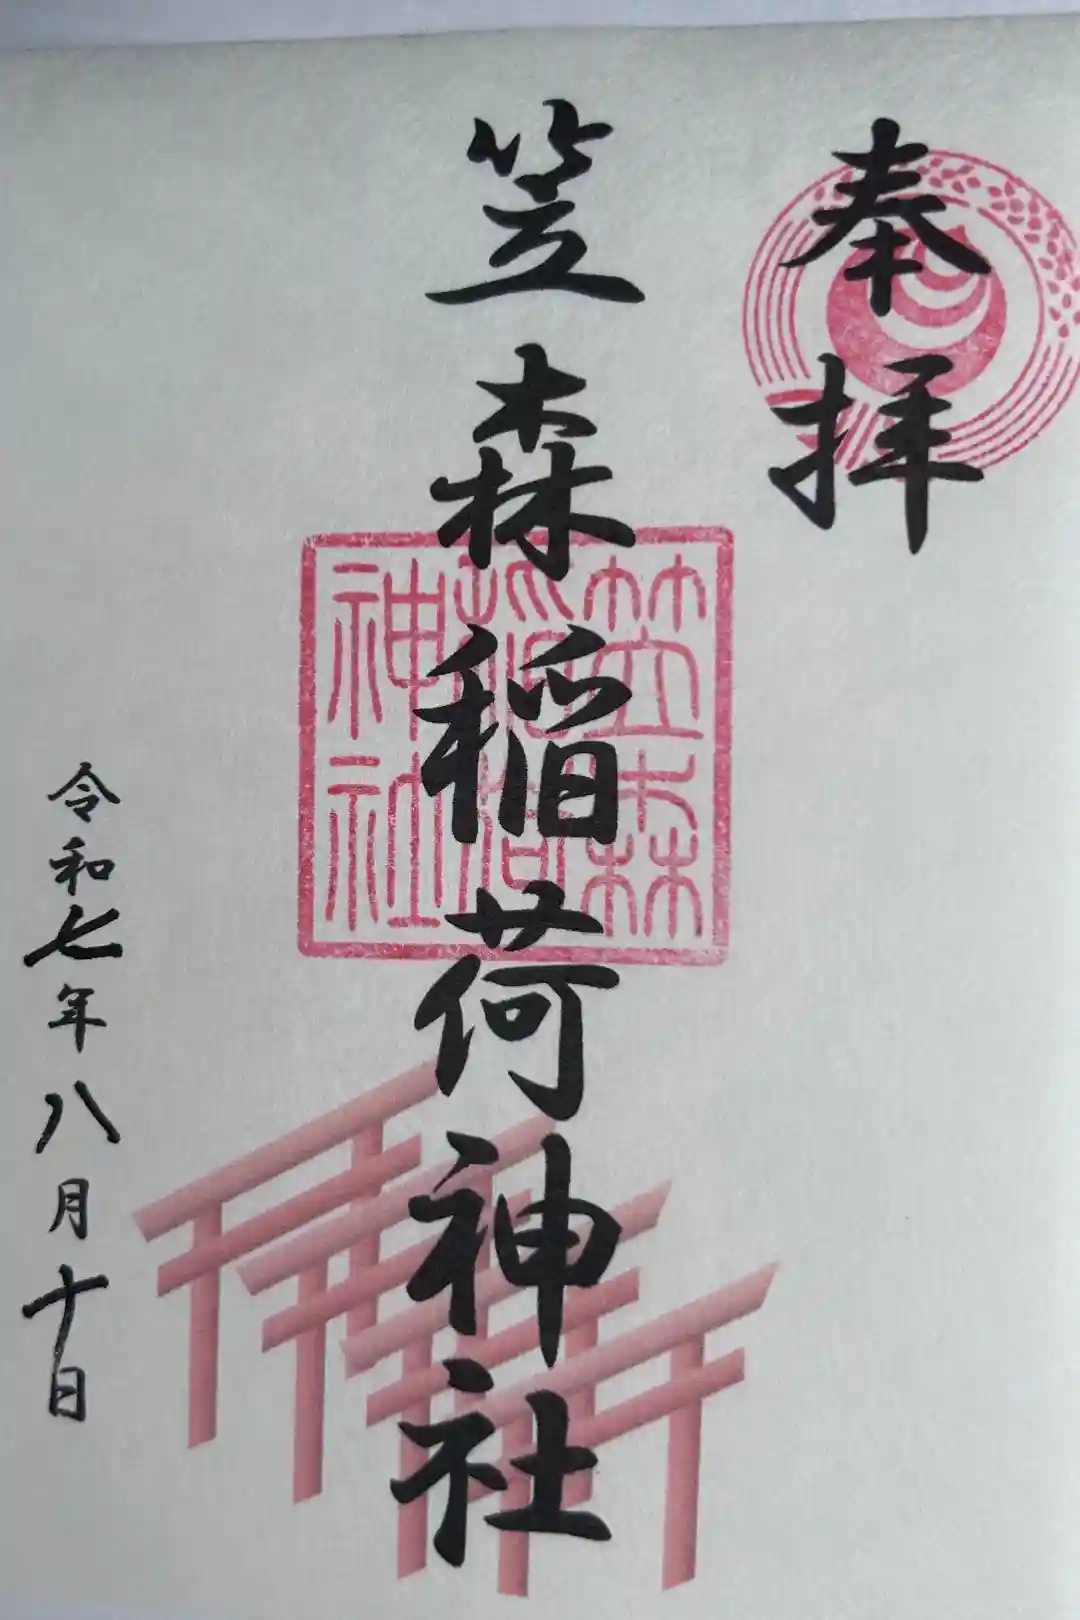 奉拝
笠森稲荷神社
笠森
稲荷
神社
令和七年八月十日